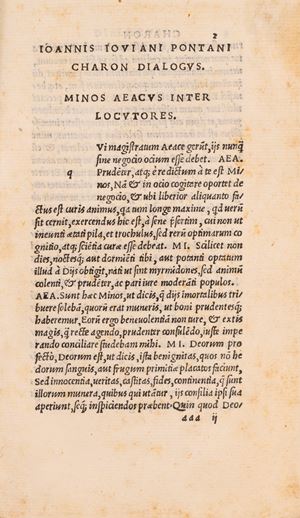 2
IOANNIS IOVIANI PONTANI
CHARON DIALOGVS.
MINOS AEACVS INTER
LOCVTORES.
q
Vi magistratum Aeace gerũt, ijs nunq̃
sine negocio ocium esse debet. AEA.
Prudẽter, atq; è re dictum à te est Mi
nos, Nã & in ocio cogitare oportet de
negocio, & ubi liberior aliquanto fa
ctus est curis animus, ea tum longe maxime, qd' ueru
sit cernit, exercendus hic est, à sene þsertim, cui non ut
ineunti ætati pila, et trochulus, sed rerũ optimarum co
gnitio, atq; sciẽtia curæ esse debeat. MI. Scilicet non
dies, noctesq; aut dormiẽti tibi, aut potanti optatum
illud à Dijs obtigit, nati ut sint myrmidones, sed animũ
colenti, & prudẽter, ac pari iure moderati populos.
AEA. Sunt hæc Minos, ut dicis, q̃ dijs immortalibus tri
buere solebã, quorũ erat muneris, ut boni prudentesq;
haberemur, Eorũ ergo beneuolentiã non iure, & extis
magis, q̃ recte agendo, prudenter consulẽdo, iuste impe
rando conciliare studebam mihi. MI. Deorum pro
fecto, Deorum est, ut dicis, ista benignitas, quos nõ hœ
dorum sanguis, aut frugum primitiæ placatos faciunt,
Sed innocentia, ueritas, castitas, fides, continentia, q̃ sunt
illorum munera, quibus qui utãtur, ijs consilia ipsi sua
aperiunt, seq; inspiciendos præbent. Quin quod Deo/
aaa ij